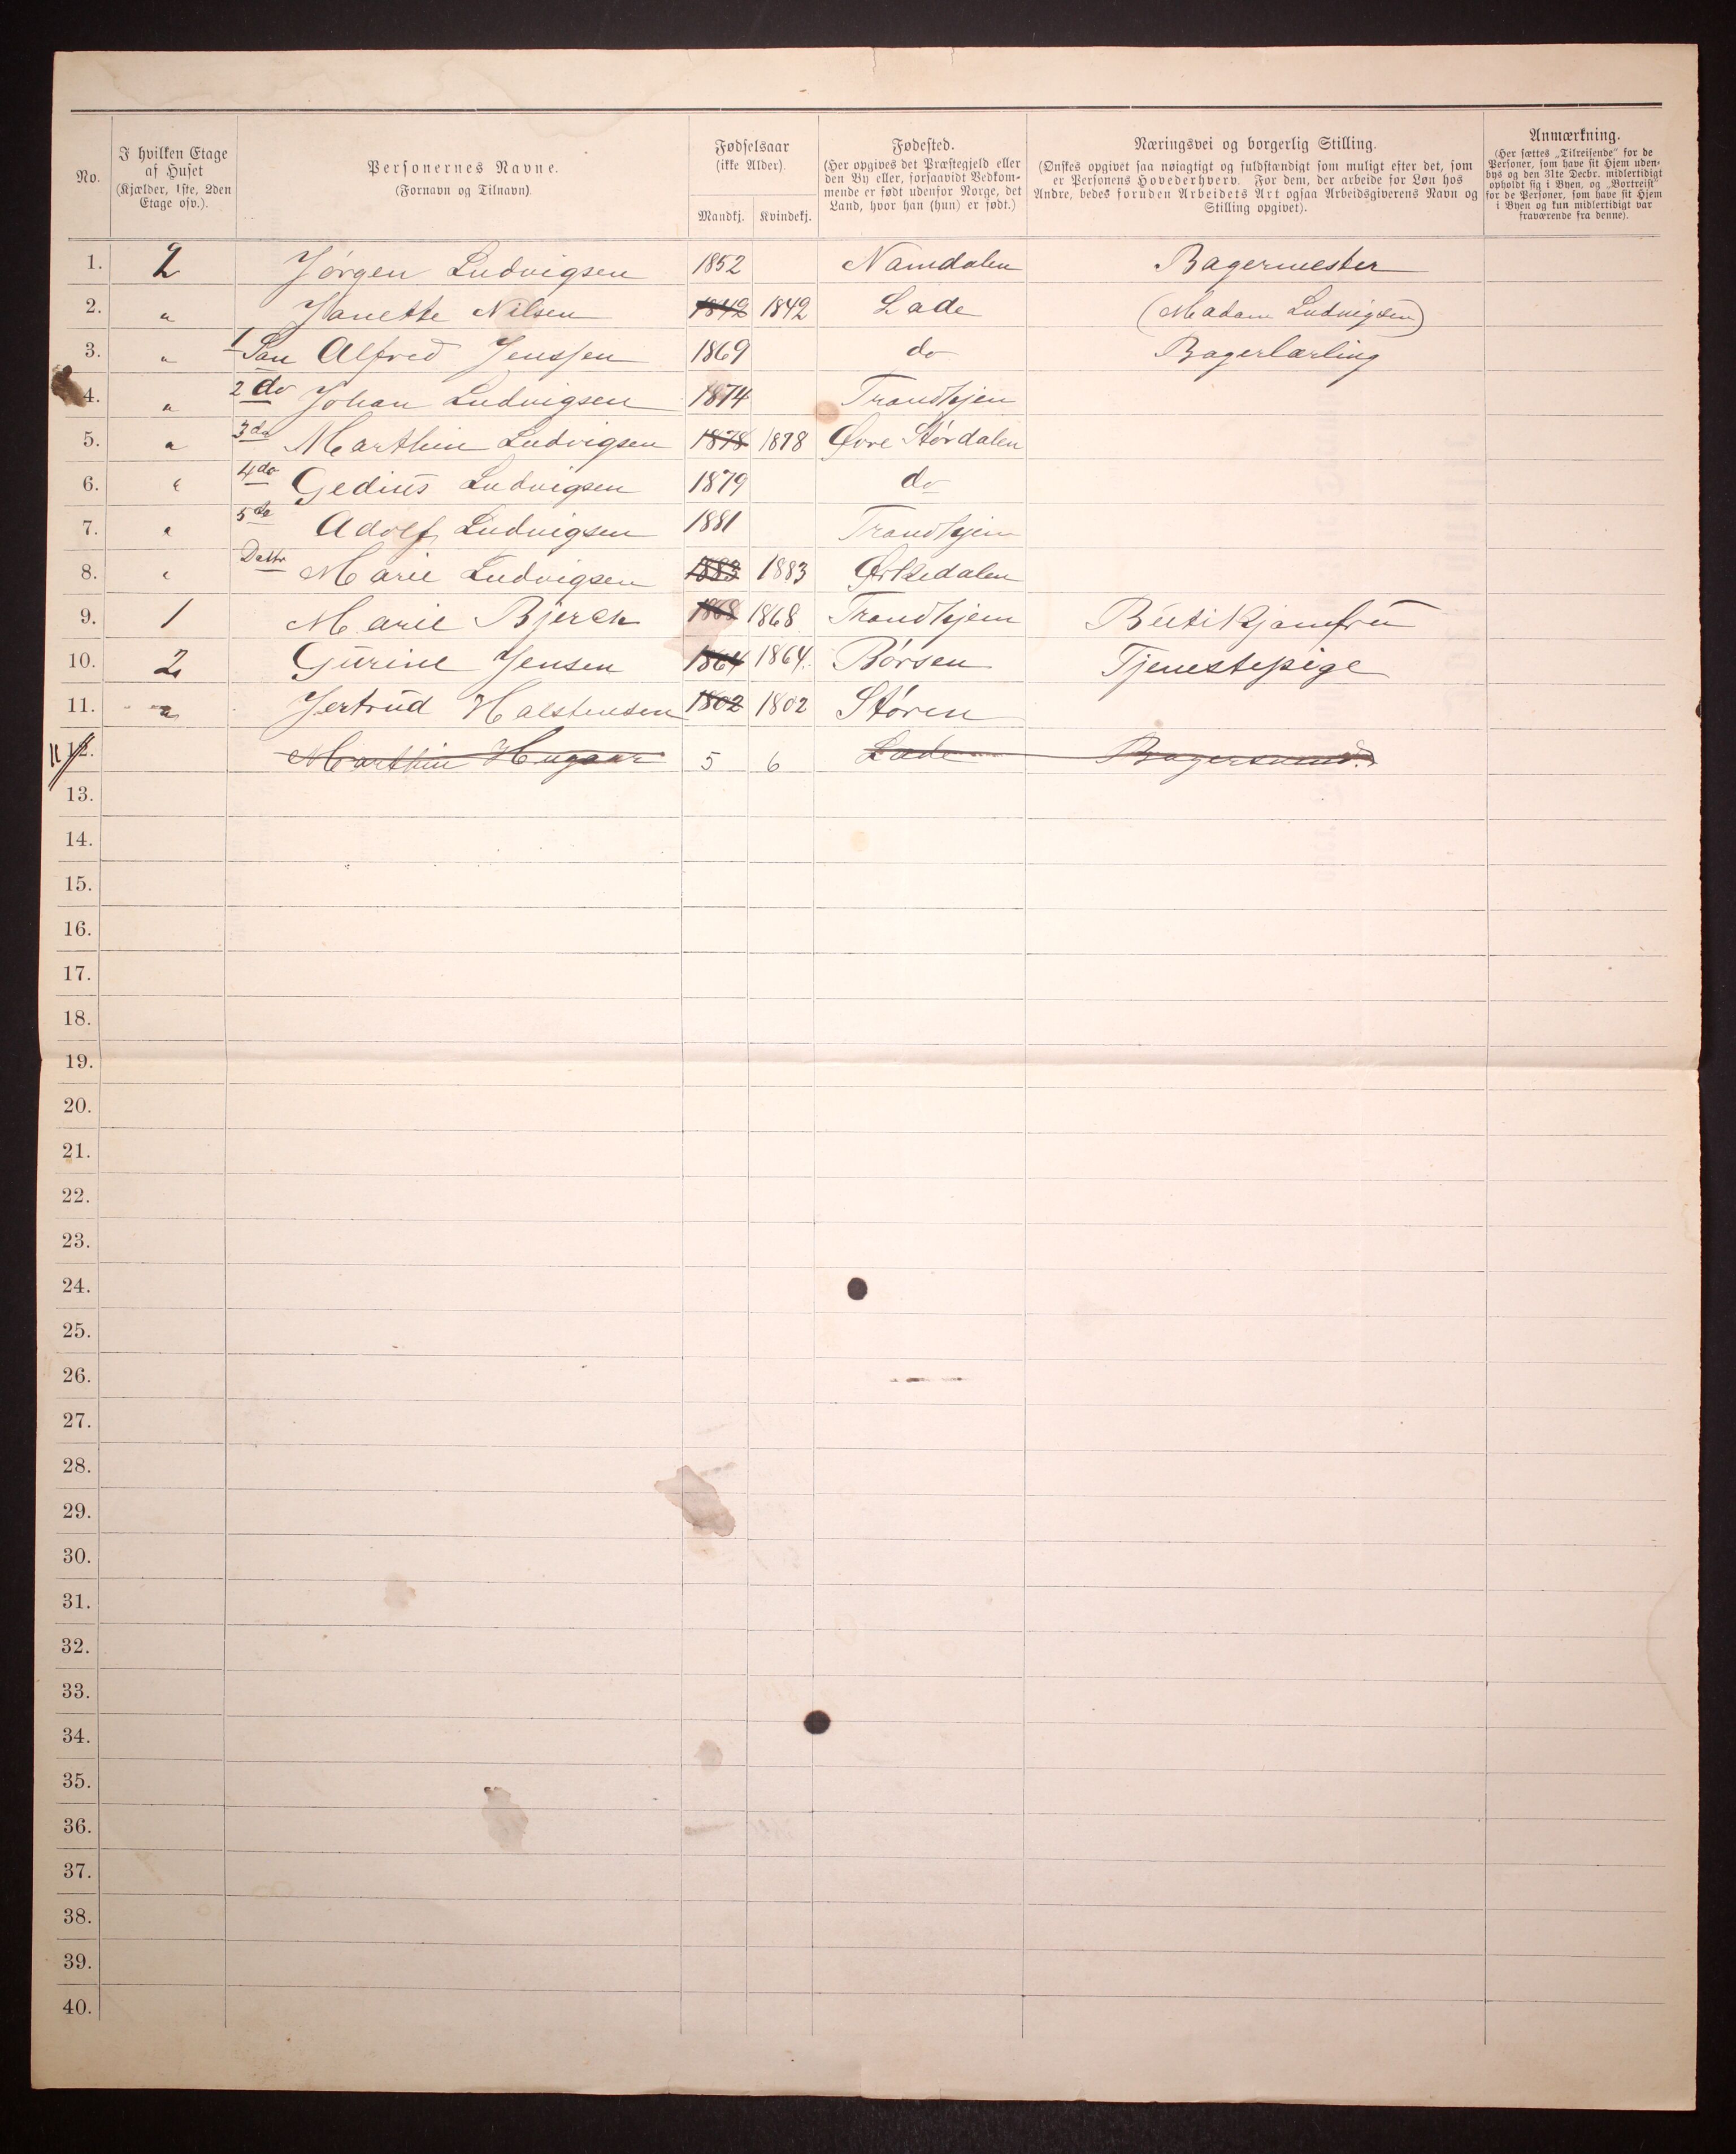 No. | I hvilken Etage af Huset (Kjælder, 1ste, 2den Etage osv.). | Personernes Navne. (Fornavn og Tilnavn). | Fødselsaar (ikke Alder). Mandkj. | Kvindekj. | Fødested. (Her opgives det Præstegjeld eller den By eller, forsaavidt Vedkommende er født udenfor Norge, det Land, hvor han (hun) er født.) | Næringsvei og borgerlig Stilling. (Ønskes opgivet saa nøiagtigt og fuldstændigt som muligt efter det, som er Personens Hovederhverv. For dem, der arbeide for Løn hos Andre, bedes foruden Arbeidets Art ogsaa Arbeidsgiverens Navn og Stilling opgivet). | Anmærkning. (Her sættes „Tilreisende" for de Personer, som have sit Hjem udenbys og den 31te Decbr. midlertidigt opholdt sig i Byen, og „Bortreist" for de Personer, som have sit Hjem i Byen og kun midlertidigt var fraværende fra denne).
1. 2 Jørgen Ludvigsen 1852 Namdalen Bagermester
2. " Janette Nilsen 1842 1842 Lade (Madam Ludvigsen)
3. " 1 Søn Alfred Jenssen 1869 do Bagerlærling
4. " 2 do Johan Ludvigsen 1874 Trondhjem
5. " 3 do Marthin Ludvigsen 1878 1878 Øvre Størdalen
6. " 4 do Gedius Ludvigsen 1879 do
7. " 5 do Adolf Ludvigsen 1881 Trondhjem
8. " Datter Marie Ludvigsen 1883 1883 Ørkedalen
9. 1 Marie Bjerck 1868 1868 Trondhjem Butikjomfru
10. 2 Gurine Jensen 1864 1864. Børsen Tjenestepige
11. " Jertrud Halstensen 1802 1802 Støren
11 12. Marthin 5 6 Lade
13.
14.
15.
16.
17.
18.
19.
20.
21.
22.
23.
24.
25.
26.
27.
28.
29.
30.
31.
32.
33.
34.
35.
36.
37.
38.
39.
40.